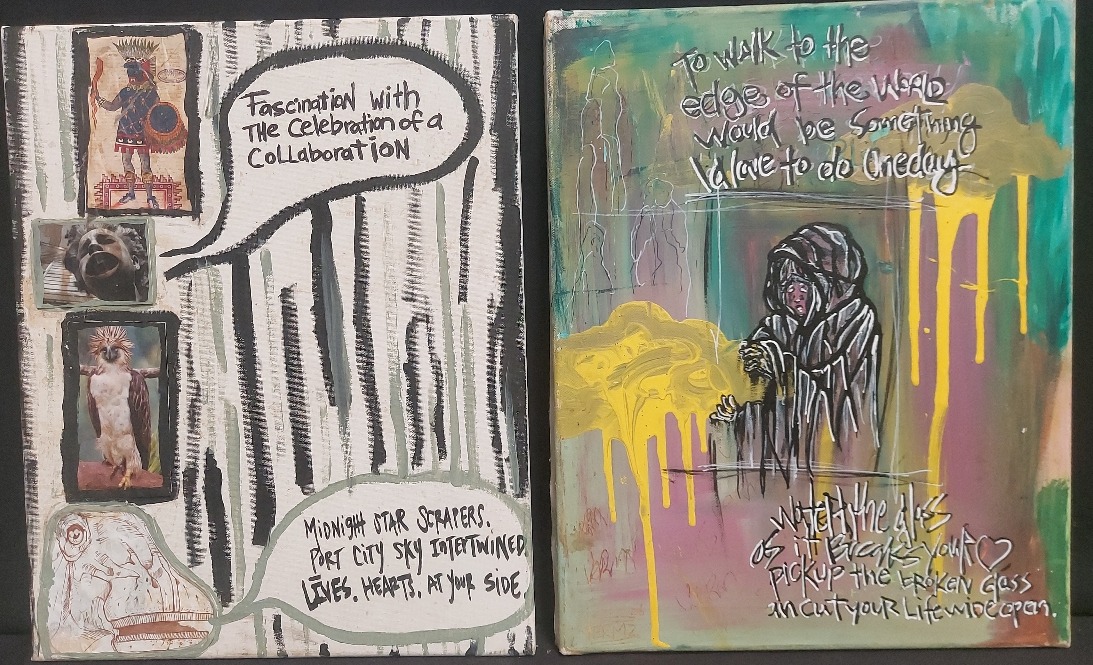 Fascination with
THE Celebration of a
COLLABORATION
MIDNIGHT STAR SCRAPERS.
PORT CITY SKY INTERTWINED
LIVES. HEARTS. AT YOUR SIDE.
TO WALK to the
edge of the WORLD
would be Something
I'd love to do Oneday
Watch the glass
as it Breaks your ♡
pickup the broken glass
an cut your Life wide open.